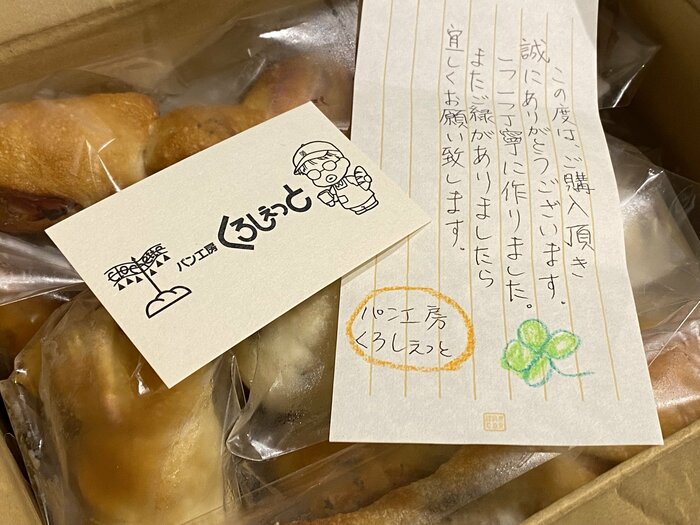 この度は、ご購入頂き
誠にありがとうございます。
一つ一つ丁寧に作りました。
またご縁がありましたら
宜しくお願い致します。
パン工房
くろしえっと
パン工房
くろしぇっと